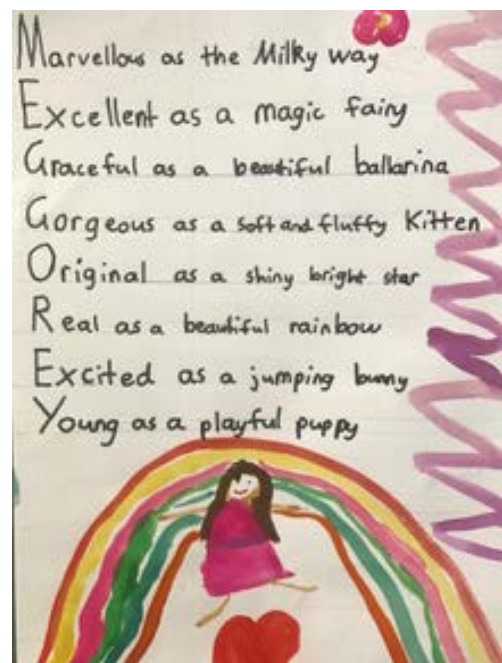 Marvellous as the Milky way
Excellent as a magic fairy
Graceful as a beautiful ballarina
Gorgeous as a soft and fluffy Kitten
Original as a shiny bright star
Real as a beautiful rainbow
Excited as a jumping bunny
Young as a playful puppy